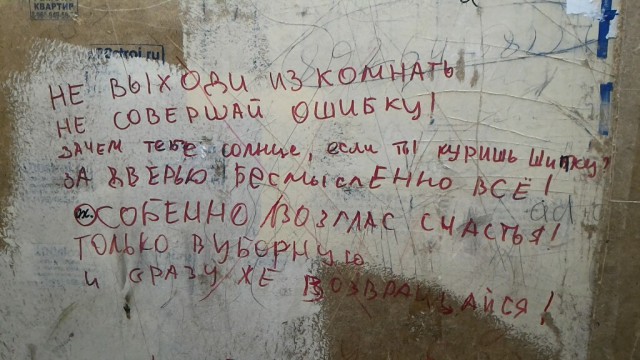 КВАРТИР
stroi.ru
НЕ ВЫХОДИ ИЗ КОМНАТЬ
НЕ СОВЕРШАЙ ОШИБКУ!
ЗАЧЕМ ТЕБЕ СОЛНЦЕ, ЕСЛИ ТЫ КУРИШЬ ШИПКУ?
ЗА ДВЕРЬЮ БЕСМЫСЛЕННО ВСЁ!
ОСОБЕННО ВОЗГЛАС СЧАСТЬЯ!
ТОЛЬКО В УБОРНУЮ
И СРАЗУ ЖЕ ВОЗВРАЩАЙСЯ!